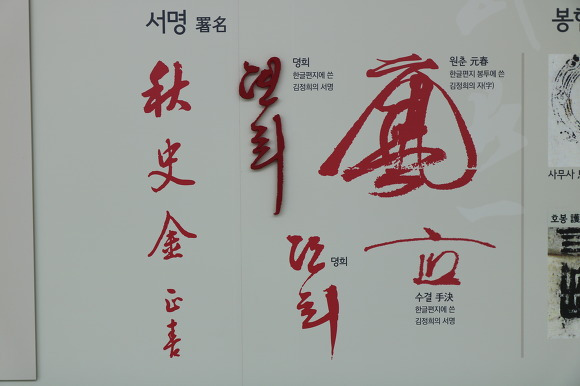 서명 署名
秋
史
金
正
喜
명희
한글편지에 쓴
김정희의 서명
원춘 元春
한글편지 봉투에 쓴
김정희의 자(字)
명희
수결 手決
한글편지에 쓴
김정희의 서명
봉
사무사
호봉